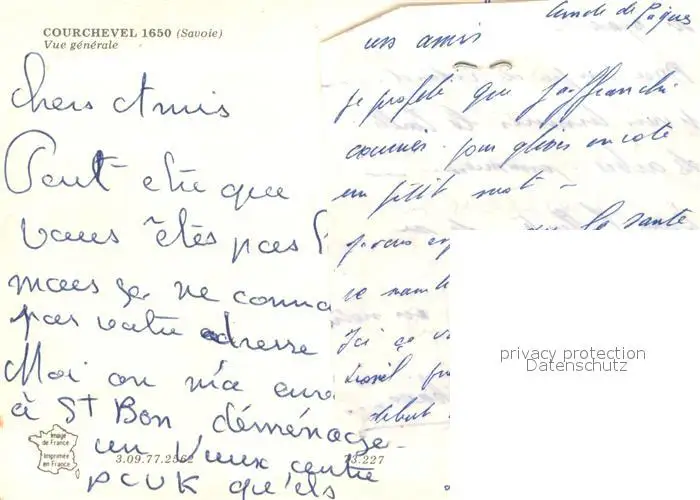 COURCHEVEL 1650 (Savoie)
Vue générale
Chers Amis
Peut etre que
vous êtes pas
mais je ne conna
pas votre adresse
Moi on m'a
à St Bon déménage
un vieux centre
PCUK qu'ils
Image
de France
Imprimée
en France
3.09.77.2562
73.227
Lundi de Pâques
amis
je profite que j'affranchi
courrier pour glisser
un petit mot -
la santé
je vous
Ici ça
travail
début
privacy protection
Datenschutz